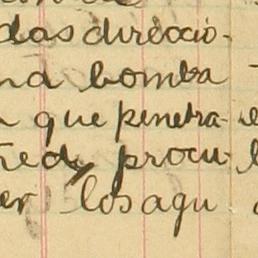 das direccio-
na bomba
que penetra-
red, procu-
er los agu